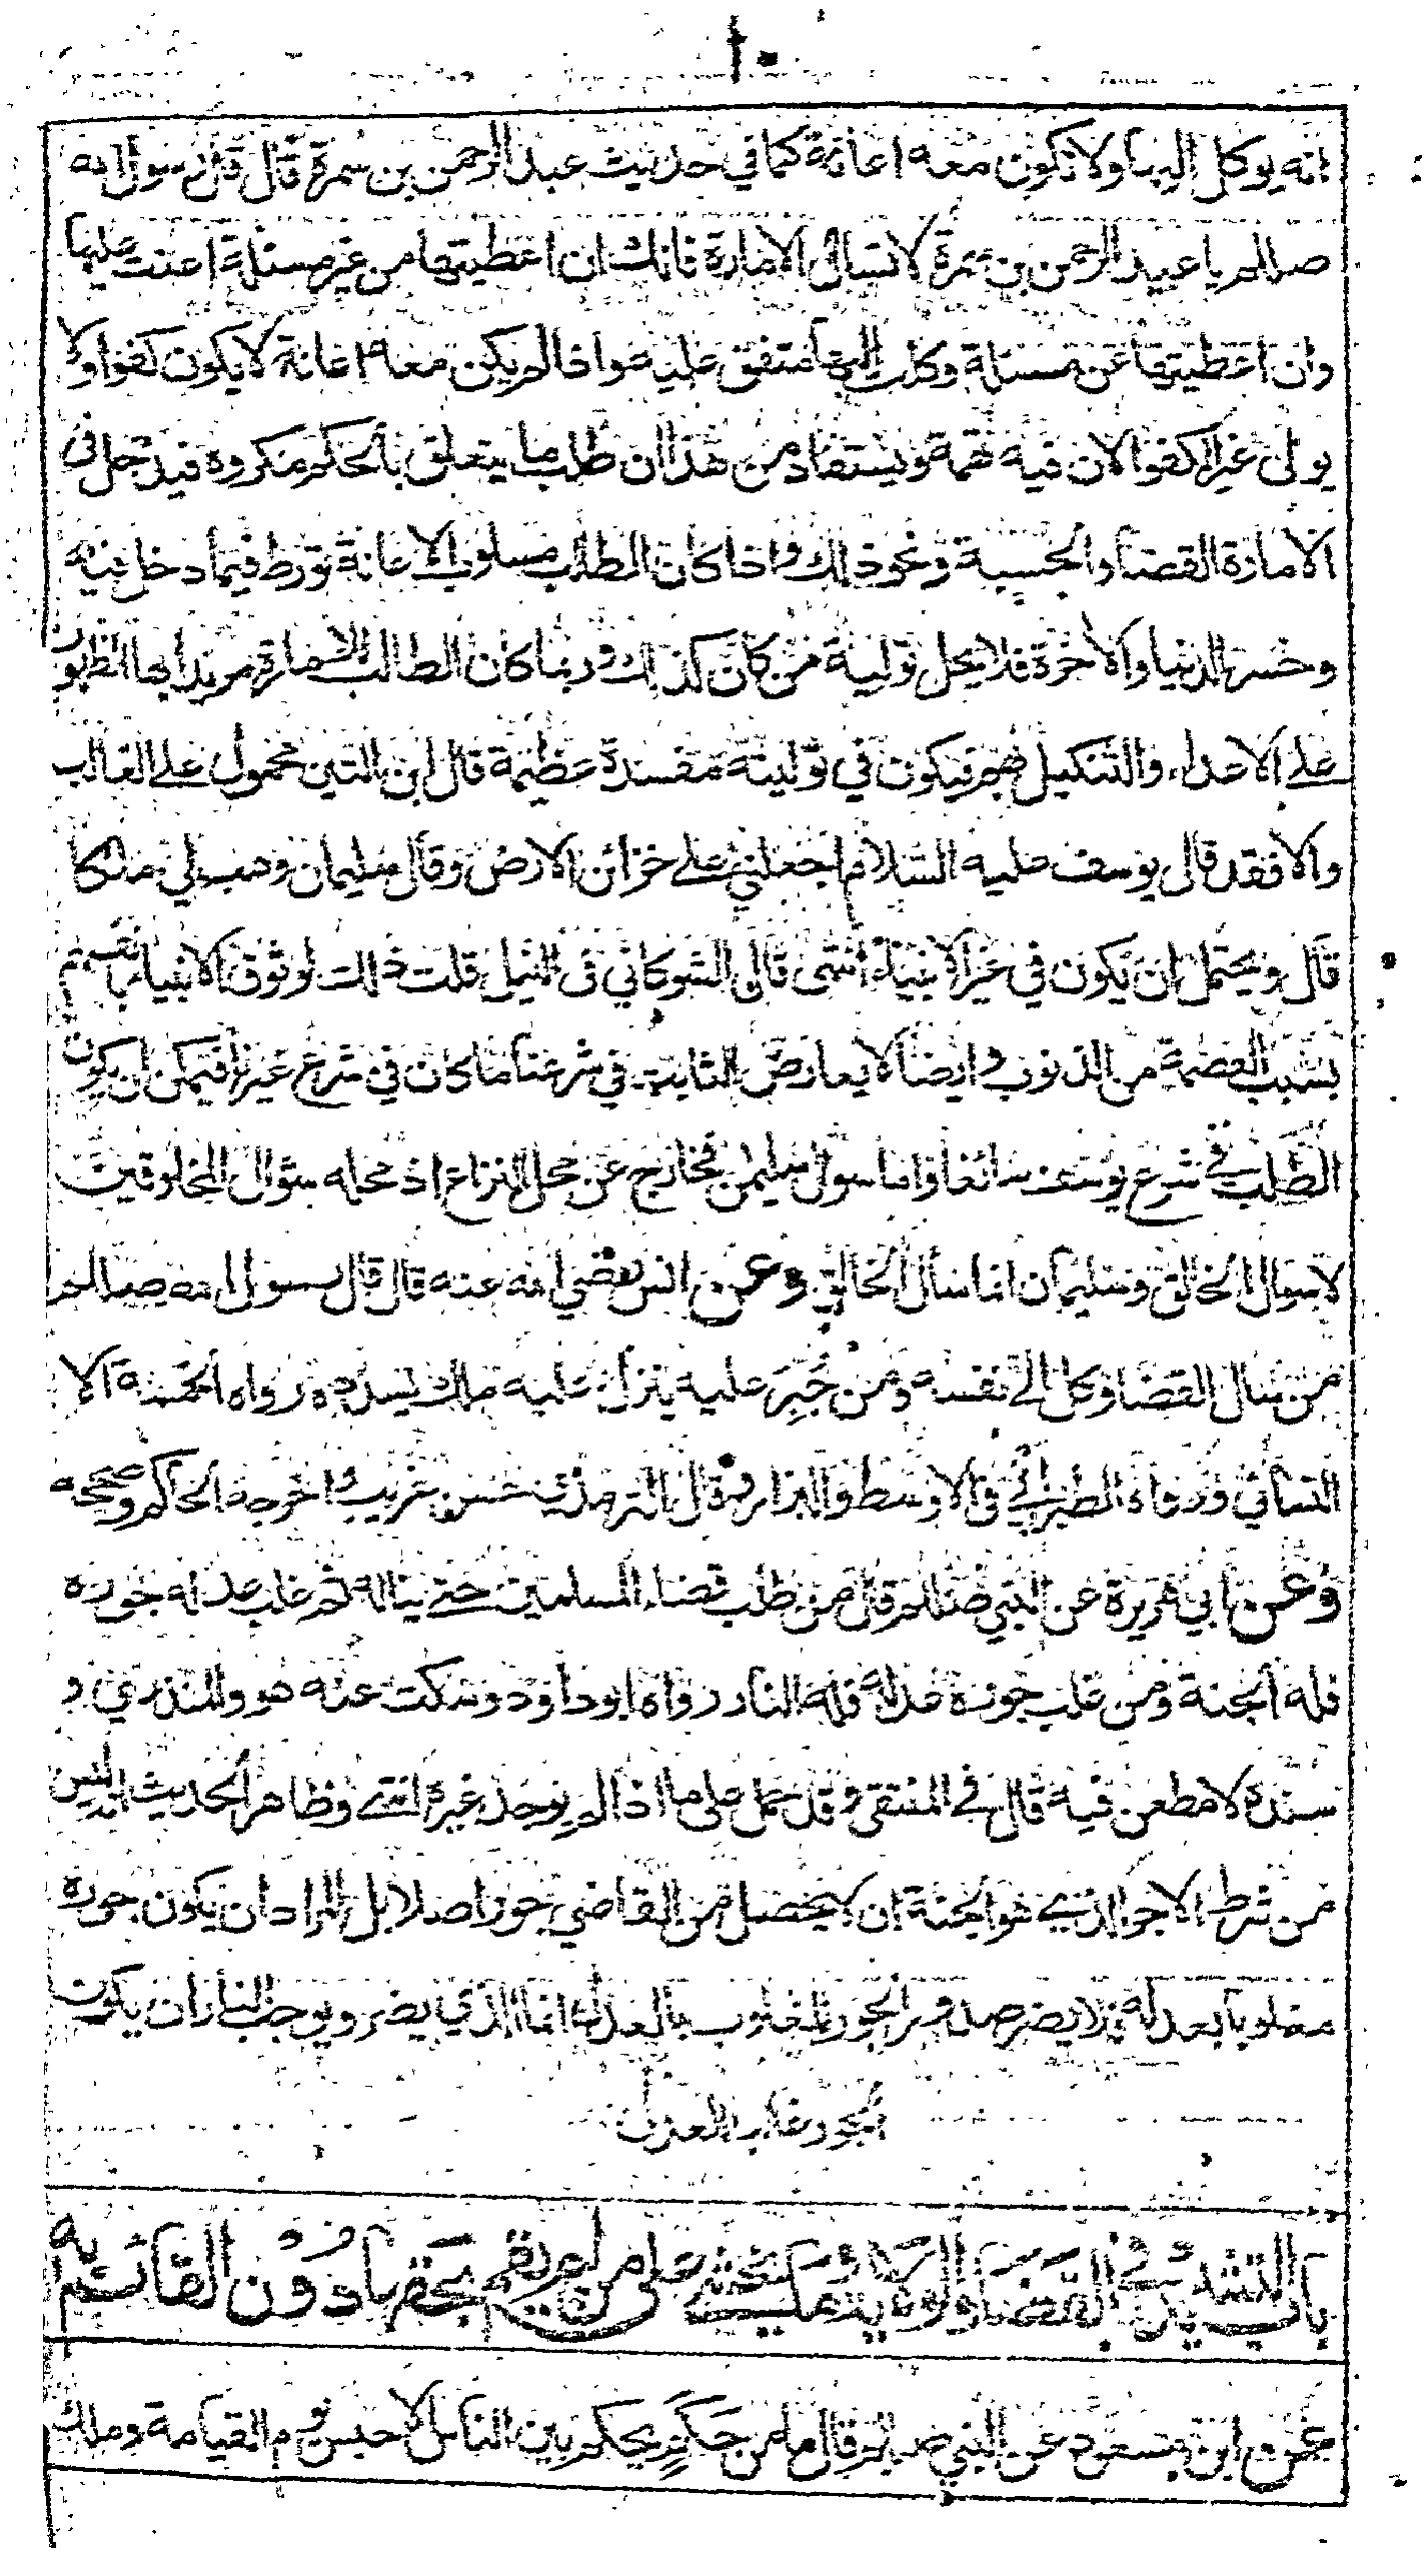 ١٠
انه يوكل اليها ولا تكون معه اعانة كما في حديث عبد الرحمن بن سمرة قال قال رسول الله
صللم يا عبد الرحمن بن سمرة لا تسال الامارة فانك ان اعطيتها من غير مسئلة اعنت عليها
وان اعطيتها عن مسئلة وكلت اليها متفق عليه واذا لم يكن معه اعانة لا يكون كفوا ولا
يولى غير الكفوا لان فيه تهمة ويستفاد من هذا ان طلب ما يتعلق بالحكم مكروه فيدخل في
الامارة القضا والحسبة ونحو ذلك واذا كان الطالب مسلوب الاعانة تورط فيما دخل فيه
وخسر الدنيا والاخرة فلا يحل تولية من كان كذلك وربما كان الطالب للامارة مريدا بها الظهور
على الاعداء والتنكيل بهم فيكون في توليته مفسدة عظيمة قال ابن التين محمول على الغالب
والا فقد قال يوسف عليه السلام اجعلني على خزائن الارض وقال سليمان وهب لي ملكا
قال ويحتمل ان يكون في غير الانبياء انتهى قال الشوكاني في النيل قلت ذلك لوثوق الانبياء بانفسهم
بسبب العصمة من الذنوب وايضا لا يعارض الثابت في شرعنا ما كان في شرع غيرنا فيمكن ان يكون
الطلب في شرع يوسف سائغا واما سوال سليمان فخارج عن محل النزاع اذ محله سؤال المخلوقين
لا سوال الخالق وسليمان انما سال الخالق وعن انس رضي الله عنه قال قال رسول الله صللم
من سال القضا وكل الى نفسه ومن جبر عليه ينزل عليه ملك يسدده رواه الخمسة الا
النسائي ورواه الطبراني في الاوسط والبزار قال الترمذي حسن غريب واخرجه الحاكم وصححه
وعن ابي هريرة عن النبي صللم قال من طلب قضاء المسلمين حتى يناله ثم غلب عدله جوره
فله الجنة ومن غلب جوره عدله فله النار رواه ابو داود وسكت عنه هو والمنذري و
سنده لا مطعن فيه قال في المنتقى وقد حمل على ما اذا لم يوجد غيره انتهى وظاهر الحديث ليس
من شرط الاجر الذي هو الجنة ان لا يحصل من القاضي جور اصلا بل المراد ان يكون جوره
مغلوبا بعدله فلا يضر صدور الجور المغلوب بالعدل انما الذي يضر ويوجب النار ان يكون
الجور غالبا للعدل
باب التشديد في القضا والولاية وما يخشى على من لم يقم بحقها دون القائم به
عن ابن مسعود عن النبي صللم قال ما من حكم يحكم بين الناس الا حبس يوم القيامة وملك